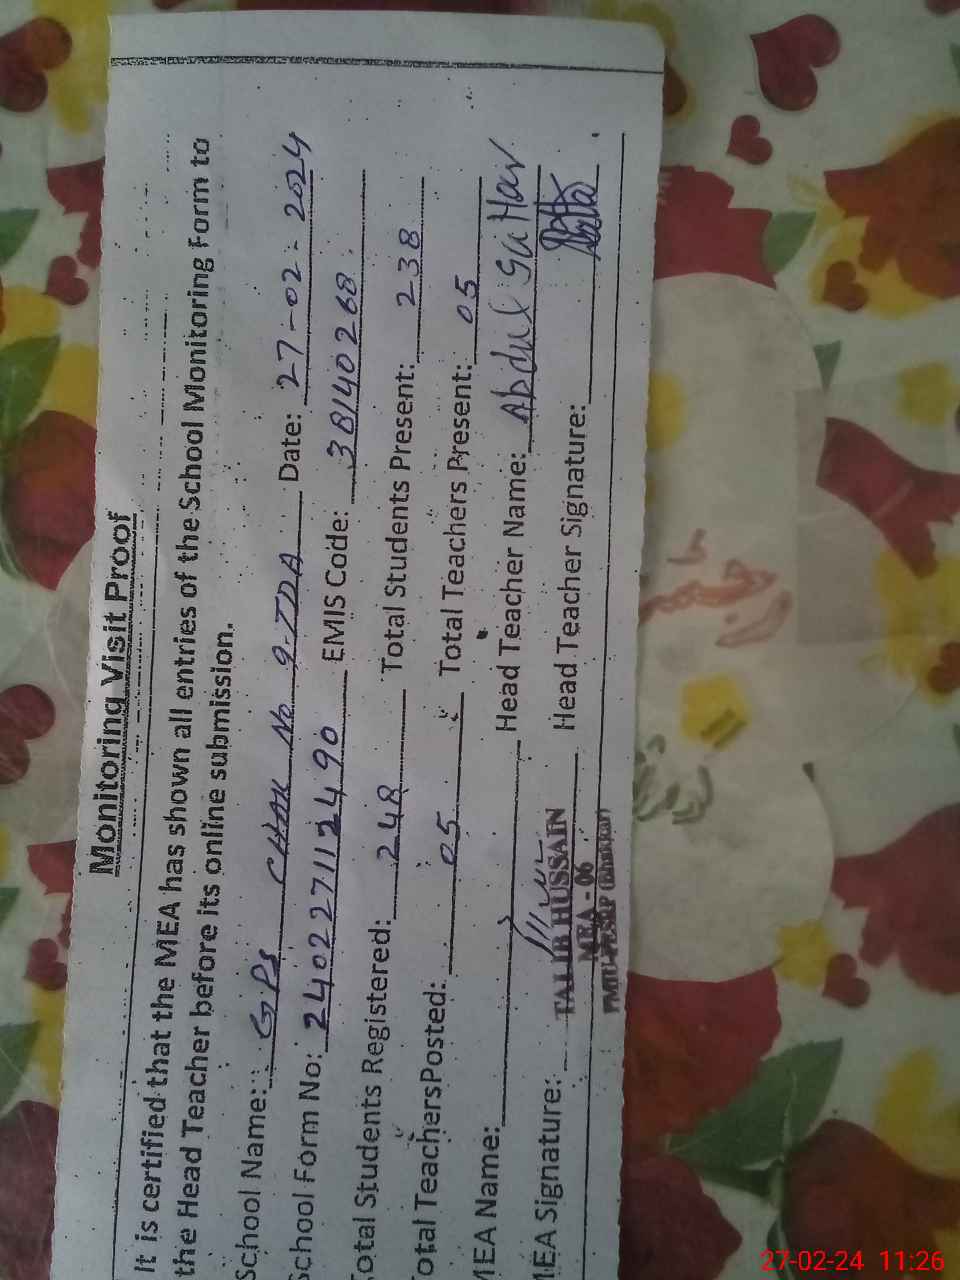 Monitoring Visit Proof
It is certified that the MEA has shown all entries of the School Monitoring Form to
the Head Teacher before its online submission.
School Name: GPS CHAK No 9-TDA Date: 27-02-2024
School Form No: 240227112490 EMIS Code: 38140268
Total Students Registered: 248 Total Students Present: 238
Total TeachersPosted: 05 Total Teachers Present: 05
MEA Name: Head Teacher Name: Abdul Sattar
MEA Signature: Head Teacher Signature:
TALIB HUSSAIN
MEA - 06
PMIU-PESRP (Bhakkar)
27-02-24 11:26